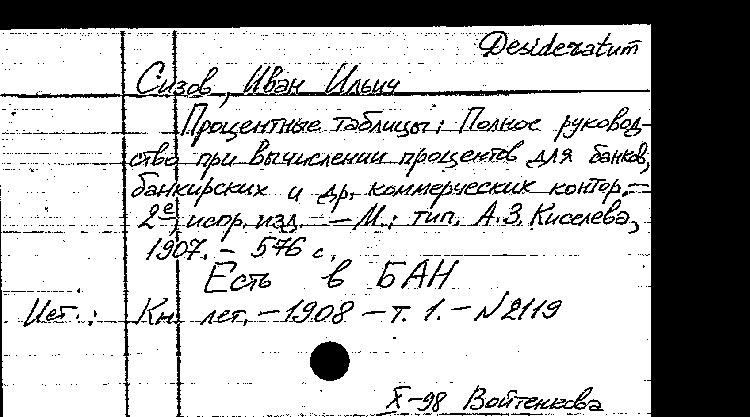 Desideratum
Сизов, Иван Ильич
Процентные таблицы: Полное руковод-
ство при вычислении процентов для банков,
банкирских и др. коммерческих контор. –
2е, испр. изд. – М.: тип. А.З. Киселева,
1907. – 576 с.
Есть в БАН
Ист.: Кн. лет. – 1908 – т. 1. – N 2119
X-98 Войтенкова